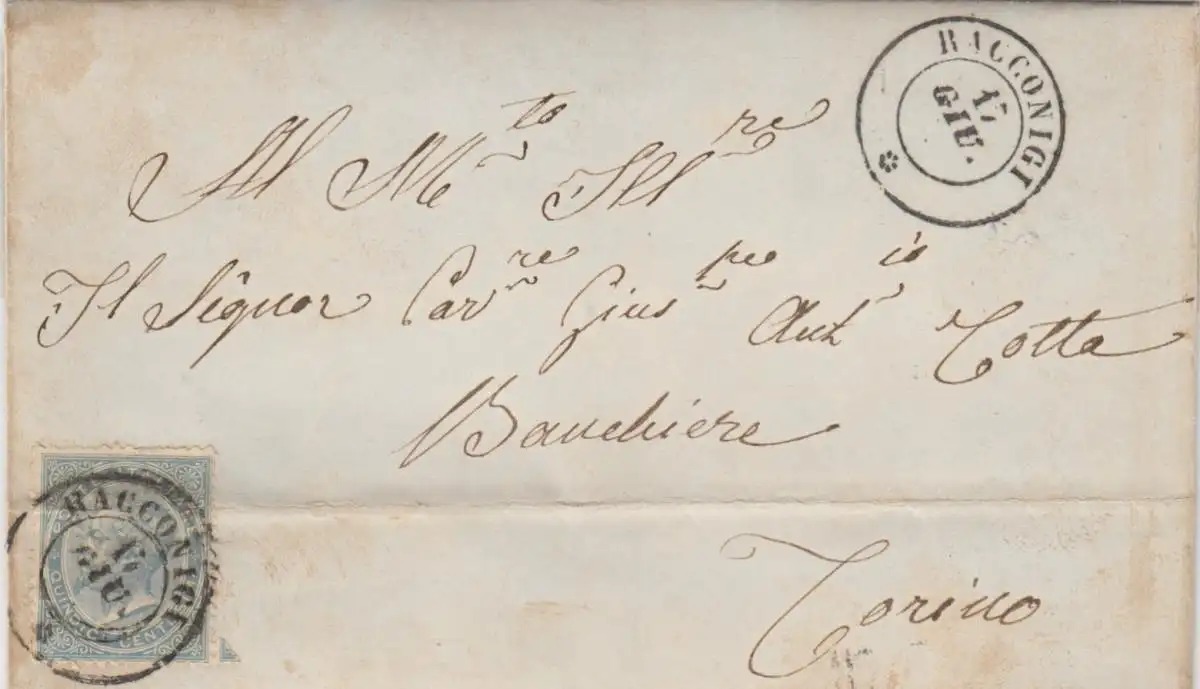 RACCONIGI
17
GIU.
Al M.to Ill.re
Il Signor Car.re Gius.pe Ant.io Cotta
Banchiere
Torino
RACCONIGI
17
GIU.
QUINDICI CENT